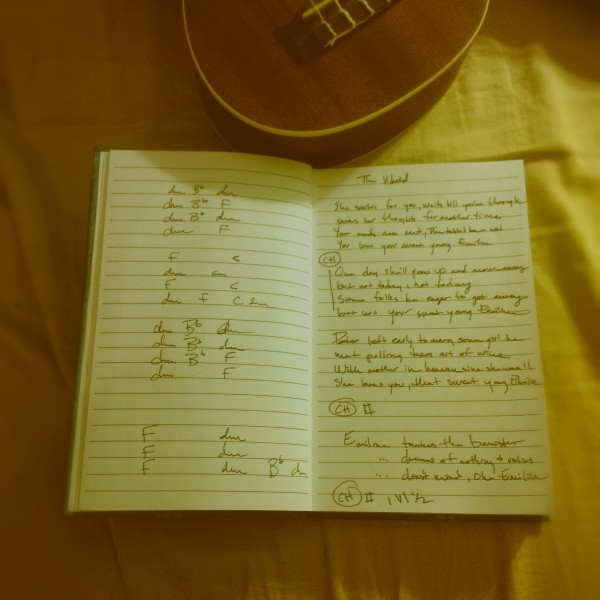 dm Bb dm
dm Bb F
dm Bb dm
dm F
F C
dm am
F C
dm F C dm
dm Bb dm
dm Bb dm
dm Bb F
dm F
F dm
F dm
F dm Bb dm
The World
She smiles for you, waits till you're through
saves her thoughts for another time
Your needs are met, The table's
You love your sweet young Emiline
CH
One day she'll grow up and move away
but not today, not today
Some folks be eager to get away
but not your sweet young Emiline
left early to marry some girl he
met pulling
With mother in heaven since she was 11
She loves you, that sweet young Emiline
CH #
Emiline touches the banister
... dreams of nothing &
... doesn't mind, Oh Emiline
CH #